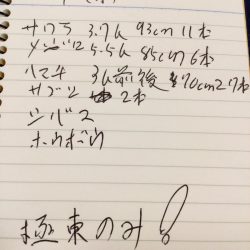 サワラ 3.7k 93cm 11本
メジロ 5.5k 85cm 6本
ハマチ 3k前後 70cm 27本
サゴシ 2本
シバス
ホウボウ
極東のみ!